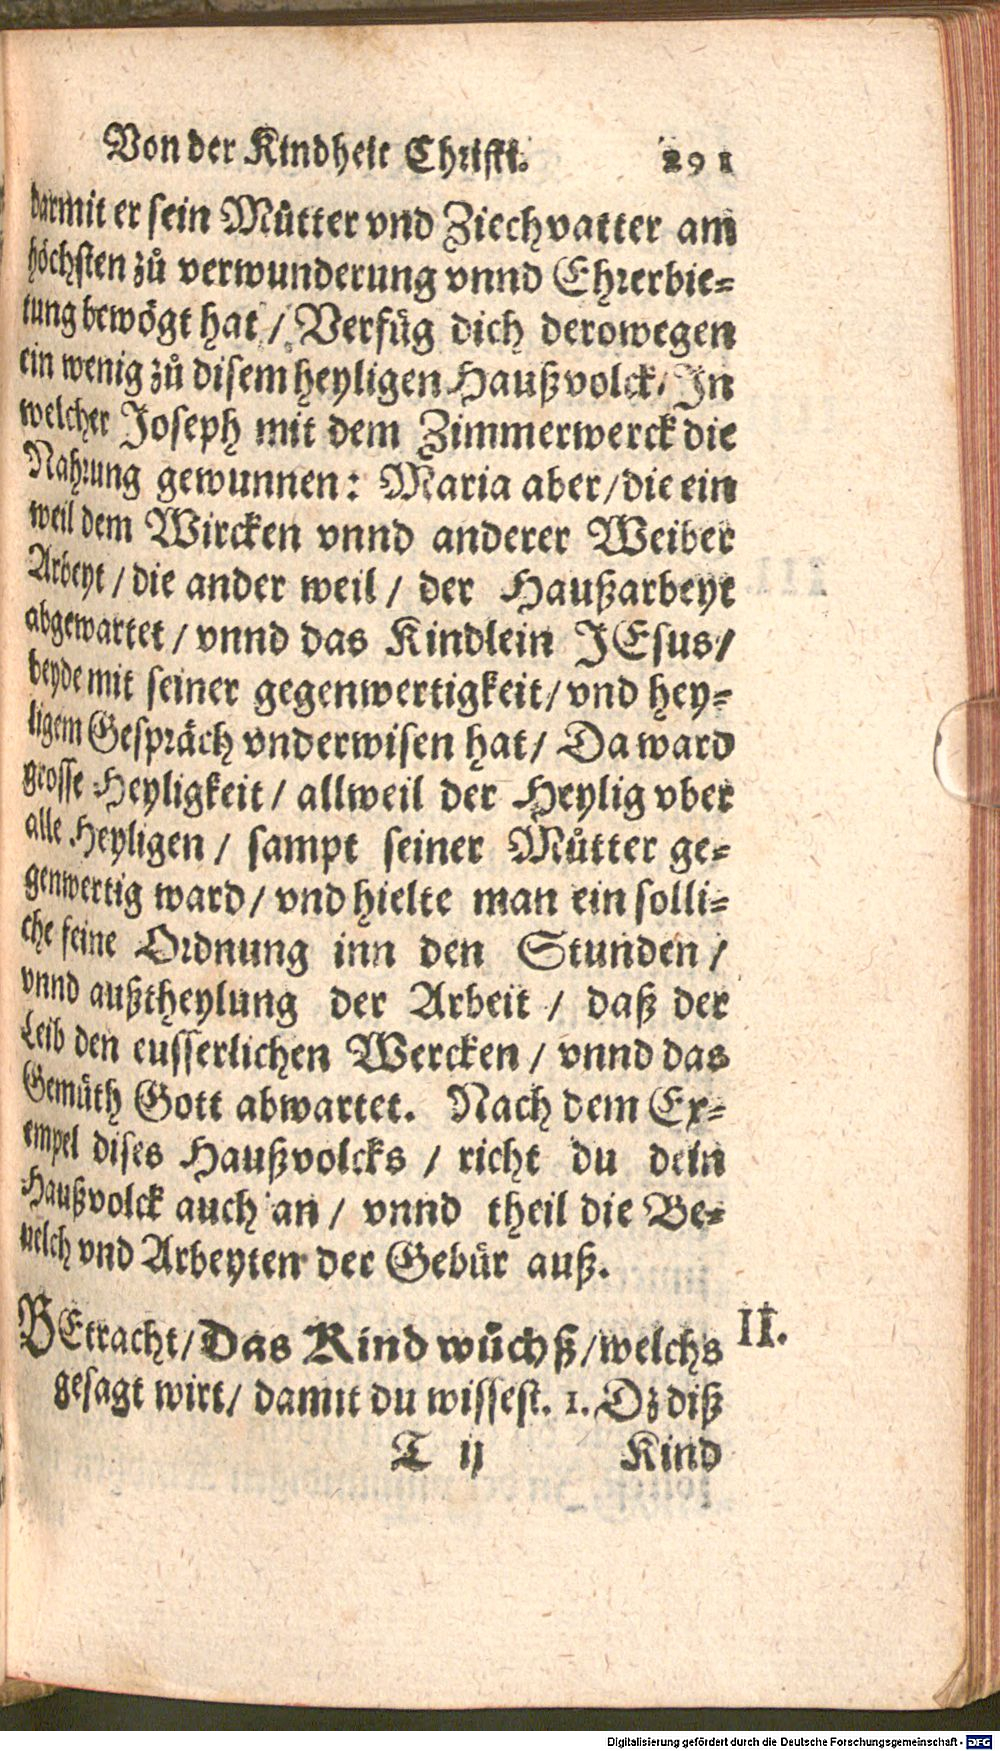 Von der Kindheit Christi. 291
darmit er sein Můtter vnd Ziechvatter am
höchsten zů verwunderung vnnd Ehrerbie=
tung bewögt hat / Verfüg dich derowegen
ein wenig zů disem heyligen Haußvolck / In
welcher Joseph mit dem Zimmerwerck die
Nahrung gewunnen: Maria aber / die ein
weil dem Wircken vnnd anderer Weiber
Arbeyt / die ander weil / der Haußarbeyt
abgewartet / vnnd das Kindlein JEsus /
beyde mit seiner gegenwertigkeit / vnd hey=
ligem Gespräch vnderwisen hat / Da ward
grosse Heyligkeit / allweil der Heylig vber
alle Heyligen / sampt seiner Můtter ge=
genwertig ward / vnd hielte man ein solli=
che feine Ordnung inn den Stunden /
vnnd außtheylung der Arbeit / daß der
Leib den eusserlichen Wercken / vnnd das
Gemüth Gott abwartet. Nach dem Ex=
empel dises Haußvolcks / richt du dein
Haußvolck auch an / vnnd theil die Be=
uelch vnd Arbeyten der Gebür auß.
BEtracht / Das Kind wůchß / welchs II.
gesagt wirt / damit du wissest. 1. Dz diß
T ij Kind
Digitalisierung gefördert durch die Deutsche Forschungsgemeinschaft - DFG